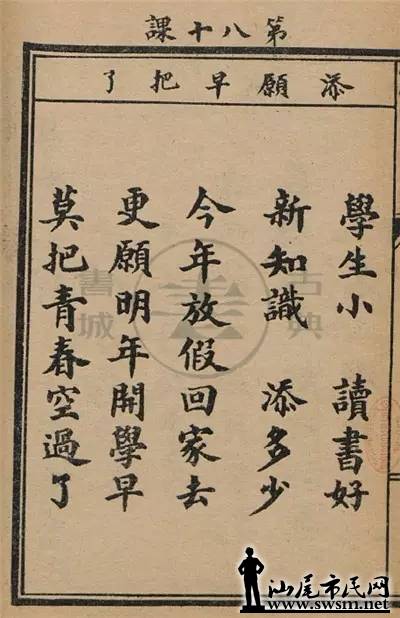 第八十課
添願早把了
學生小　讀書好
新知識　添多少
今年放假回家去
更願明年開學早
莫把青春空過了
古典書城
汕尾市民网
www.swsm.net